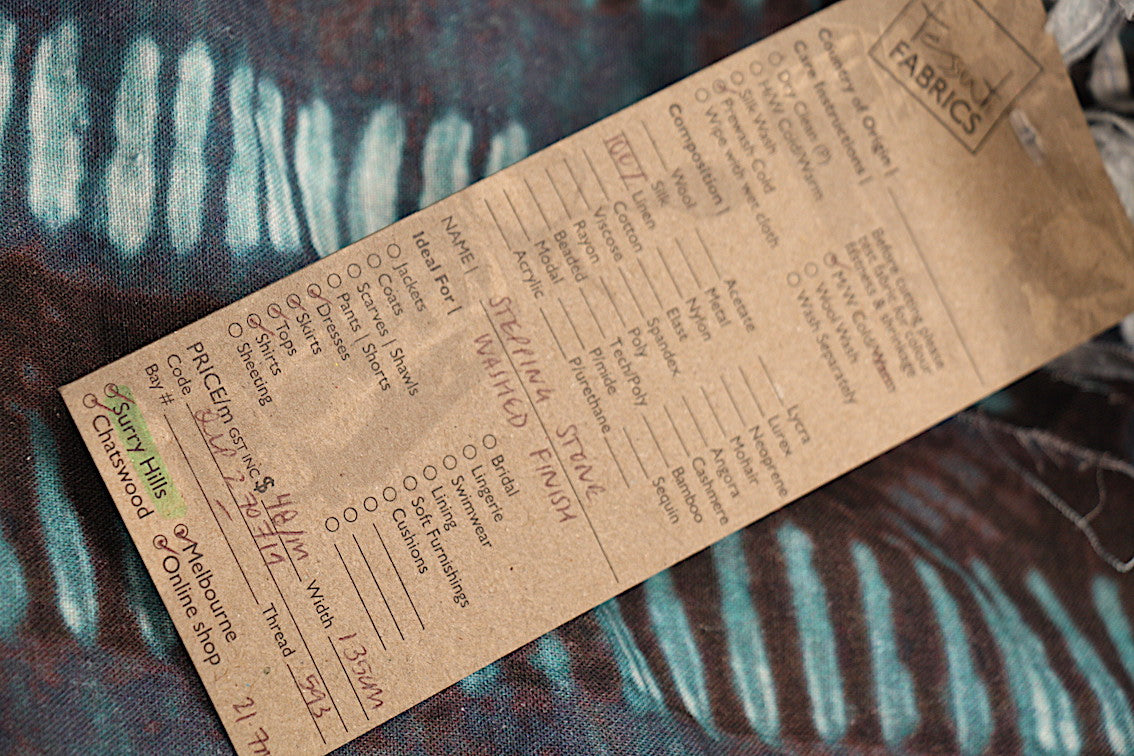 Tessuti
FABRICS
Country of Origin |
Care Instructions |
Dry Clean (P)
H/W Cold/Warm
Silk Wash
Prewash Cold
Wipe with wet cloth
Before cutting please
test fabric for colour
fastness & shrinkage
M/W Cold/Warm
Wool Wash
Wash Separately
Composition |
Wool
Silk
100% Linen
Cotton
Viscose
Rayon
Beaded
Modal
Acrylic
Acetate
Metal
Nylon
Elast
Spandex
Poly
Tech/Poly
Pimide
Plurethane
Lycra
Lurex
Neoprene
Mohair
Angora
Cashmere
Bamboo
Sequin
NAME | STEPPING STONE
WASHED FINISH
Ideal For |
Jackets
Coats
Scarves | Shawls
Pants | Shorts
Dresses
Skirts
Tops
Shirts
Sheeting
Bridal
Lingerie
Swimwear
Lining
Soft Furnishings
Cushions
PRICE/m GST INC $ 48/m Width 135cm
Code
Thread 593
Bay #
Surry Hills
Melbourne
Chatswood
Online shop